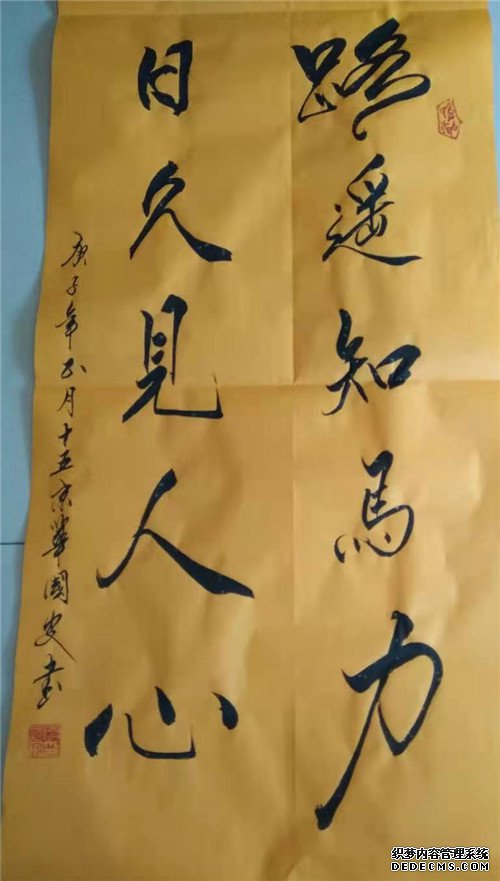 路遥知馬力
日久見人心
庚子年正月十五京華國史書
织梦内容管理系统
DEDECMS.COM